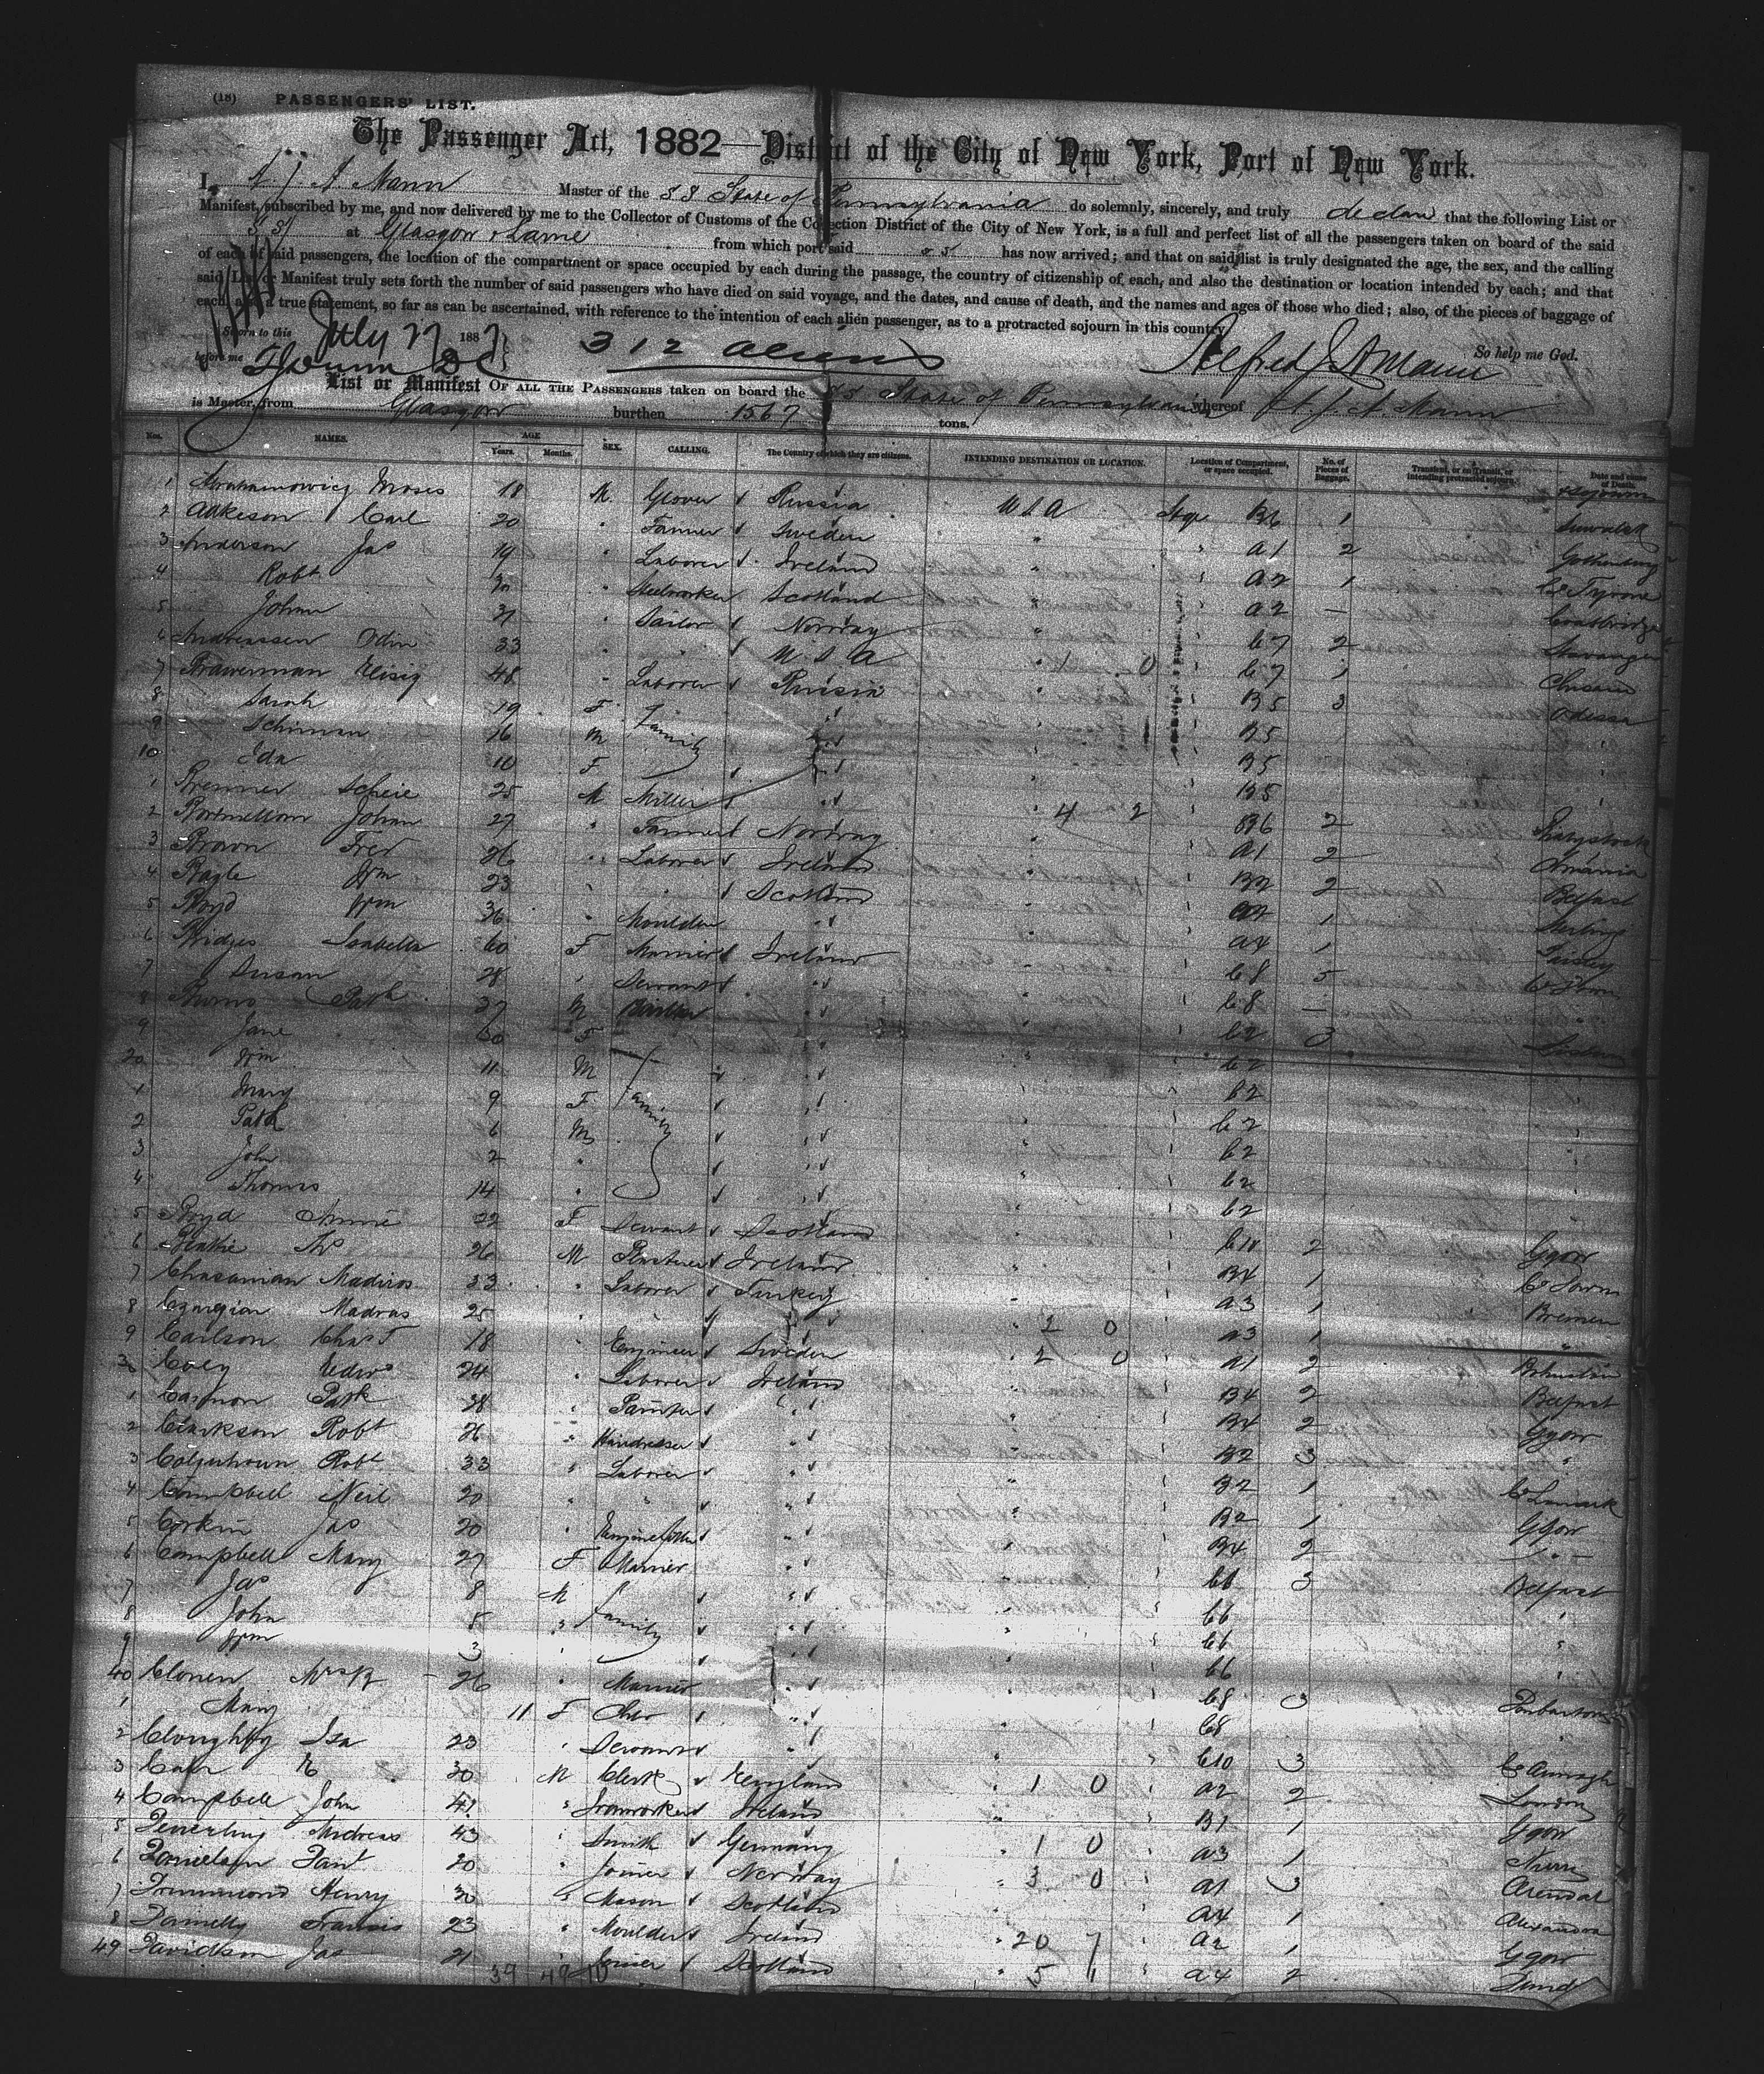 (18) PASSENGERS' LIST.
The Passenger Act, 1882—District of the City of New York, Port of New York.
I, A. J. A. Mann Master of the SS State of Pennsylvania do solemnly, sincerely, and truly declare that the following List or
Manifest, subscribed by me, and now delivered by me to the Collector of Customs of the Collection District of the City of New York, is a full and perfect list of all the passengers taken on board of the said
SS at Glasgow & Larne from which port said SS has now arrived; and that on said list is truly designated the age, the sex, and the calling
of each of said passengers, the location of the compartment or space occupied by each during the passage, the country of citizenship of each, and also the destination or location intended by each; and that
said List or Manifest truly sets forth the number of said passengers who have died on said voyage, and the dates, and cause of death, and the names and ages of those who died; also, of the pieces of baggage of
each, and a true statement, so far as can be ascertained, with reference to the intention of each alien passenger, as to a protracted sojourn in this country
Sworn to this July 188 312 aliens Alfred J A Mann So help me God.
before me
List or Manifest OF ALL THE PASSENGERS taken on board the SS State of Pennsylvania whereof A. J. A. Mann
is Master, from Glasgow burthen 1567 tons.
Nos. NAMES. AGE Years. Months. SEX. CALLING. The Country of which they are citizens. INTENDING DESTINATION OR LOCATION. Location of Compartment, or space occupied. No. of Pieces of Baggage. Transient, or in Transit, or intending protracted sojourn. Date and cause of Death.
1 Abrahamowicz Moses 18 M. Glover Russia U S A Stge B6 1 Suwalk
2 Adkeson Carl 20 " Farmer Sweden " A1 2 Gothenburg
3 Anderson Jas 19 " Laborer Ireland " A2 1 Co Tyrone
4 Robt 30 " Steelworker Scotland " A2 — Coatbridge
5 Johan 31 " Sailor Norway " C7 2 Stavanger
6 Andreassen Odin 33 " U S A 1 0 C7 1
7 Brawerman Elisig 48 " Laborer Russia B5 3 Odessa
8 Sarah 19 F Family B5 "
9 Schiman 16 M B5 "
10 Ida 10 F B5 "
1 Brenner Scheie 25 M Miller " 4 2 B6 2
2 Johan 27 " Farmer Norway A1 2
3 Brown Fred 26 " Laborer Ireland B2 2 Belfast
4 Bagle Wm 23 " Scotland A2 1 Stirling
5 Boyd Wm 36 " Moulder " A4 1
6 Bridges Isabella 60 F Married Ireland C8 5 Co Down
7 Susan 28 " Servant " C8 — "
8 Burns Patk 37 M " C2 3
9 Jane 30 F " C2
20 Wm 11 M Family " C2
1 Mary 9 F " C2
2 Patk 6 M " C2
3 John 2 " " C2
4 Thomas 14 " " C2
5 Boyd Annie 22 F Servant Scotland C10 2 Ggow
6 Beattie Ths 26 M Plasterer Ireland B4 1 Co Down
7 Chasanian Madiros 33 " Laborer Turkey A3 1 Bremen
8 Czaregian Madras 25 " 2 0 A3 1 "
9 Carlson Chas F 18 " Engineer Sweden 2 0 A1 2
30 Coey Edwd 24 " Laborer Ireland B4 2 Belfast
1 Cannon Patk 28 " Painter " B4 2 Ggow
2 Clarkson Robt 26 " Hairdresser " B2 3 "
3 Colquhoun Robt 33 " Laborer " B2 1 Co Lanark
4 Campbell Neil 20 " " " B2 1 Ggow
5 Corkin Jas 20 " Enginefitter " B4 2 "
6 Campbell Mary 27 F Married " C6 3 Belfast
7 Jas 8 M Family " C6 "
8 John 5 " " C6 "
9 Wm 3 " " C6 "
40 Clonen Mrs R 26 " Married " C8 3 Dunbarton
1 Mary 11 F Child " C8
2 Cloughley Isa 23 " Servant " C10 3 Co Armagh
3 Carr E 30 M Clerk England 1 0 A2 2 London
4 Campbell John 42 " Ironworker Ireland B1 1 Ggow
5 Andreas 43 " Smith Germany 1 0 A3 1
6 Danielsen 20 " Joiner Norway 3 0 A1 3 Arendal
7 Drummond Henry 30 " Mason Scotland A4 1 Alexandria
8 Donnelly Francis 23 " Moulder Ireland 20 7 A2 1 Ggow
49 Davidson Jas 21 " Joiner Scotland 5 11 A4 2
39 49 10